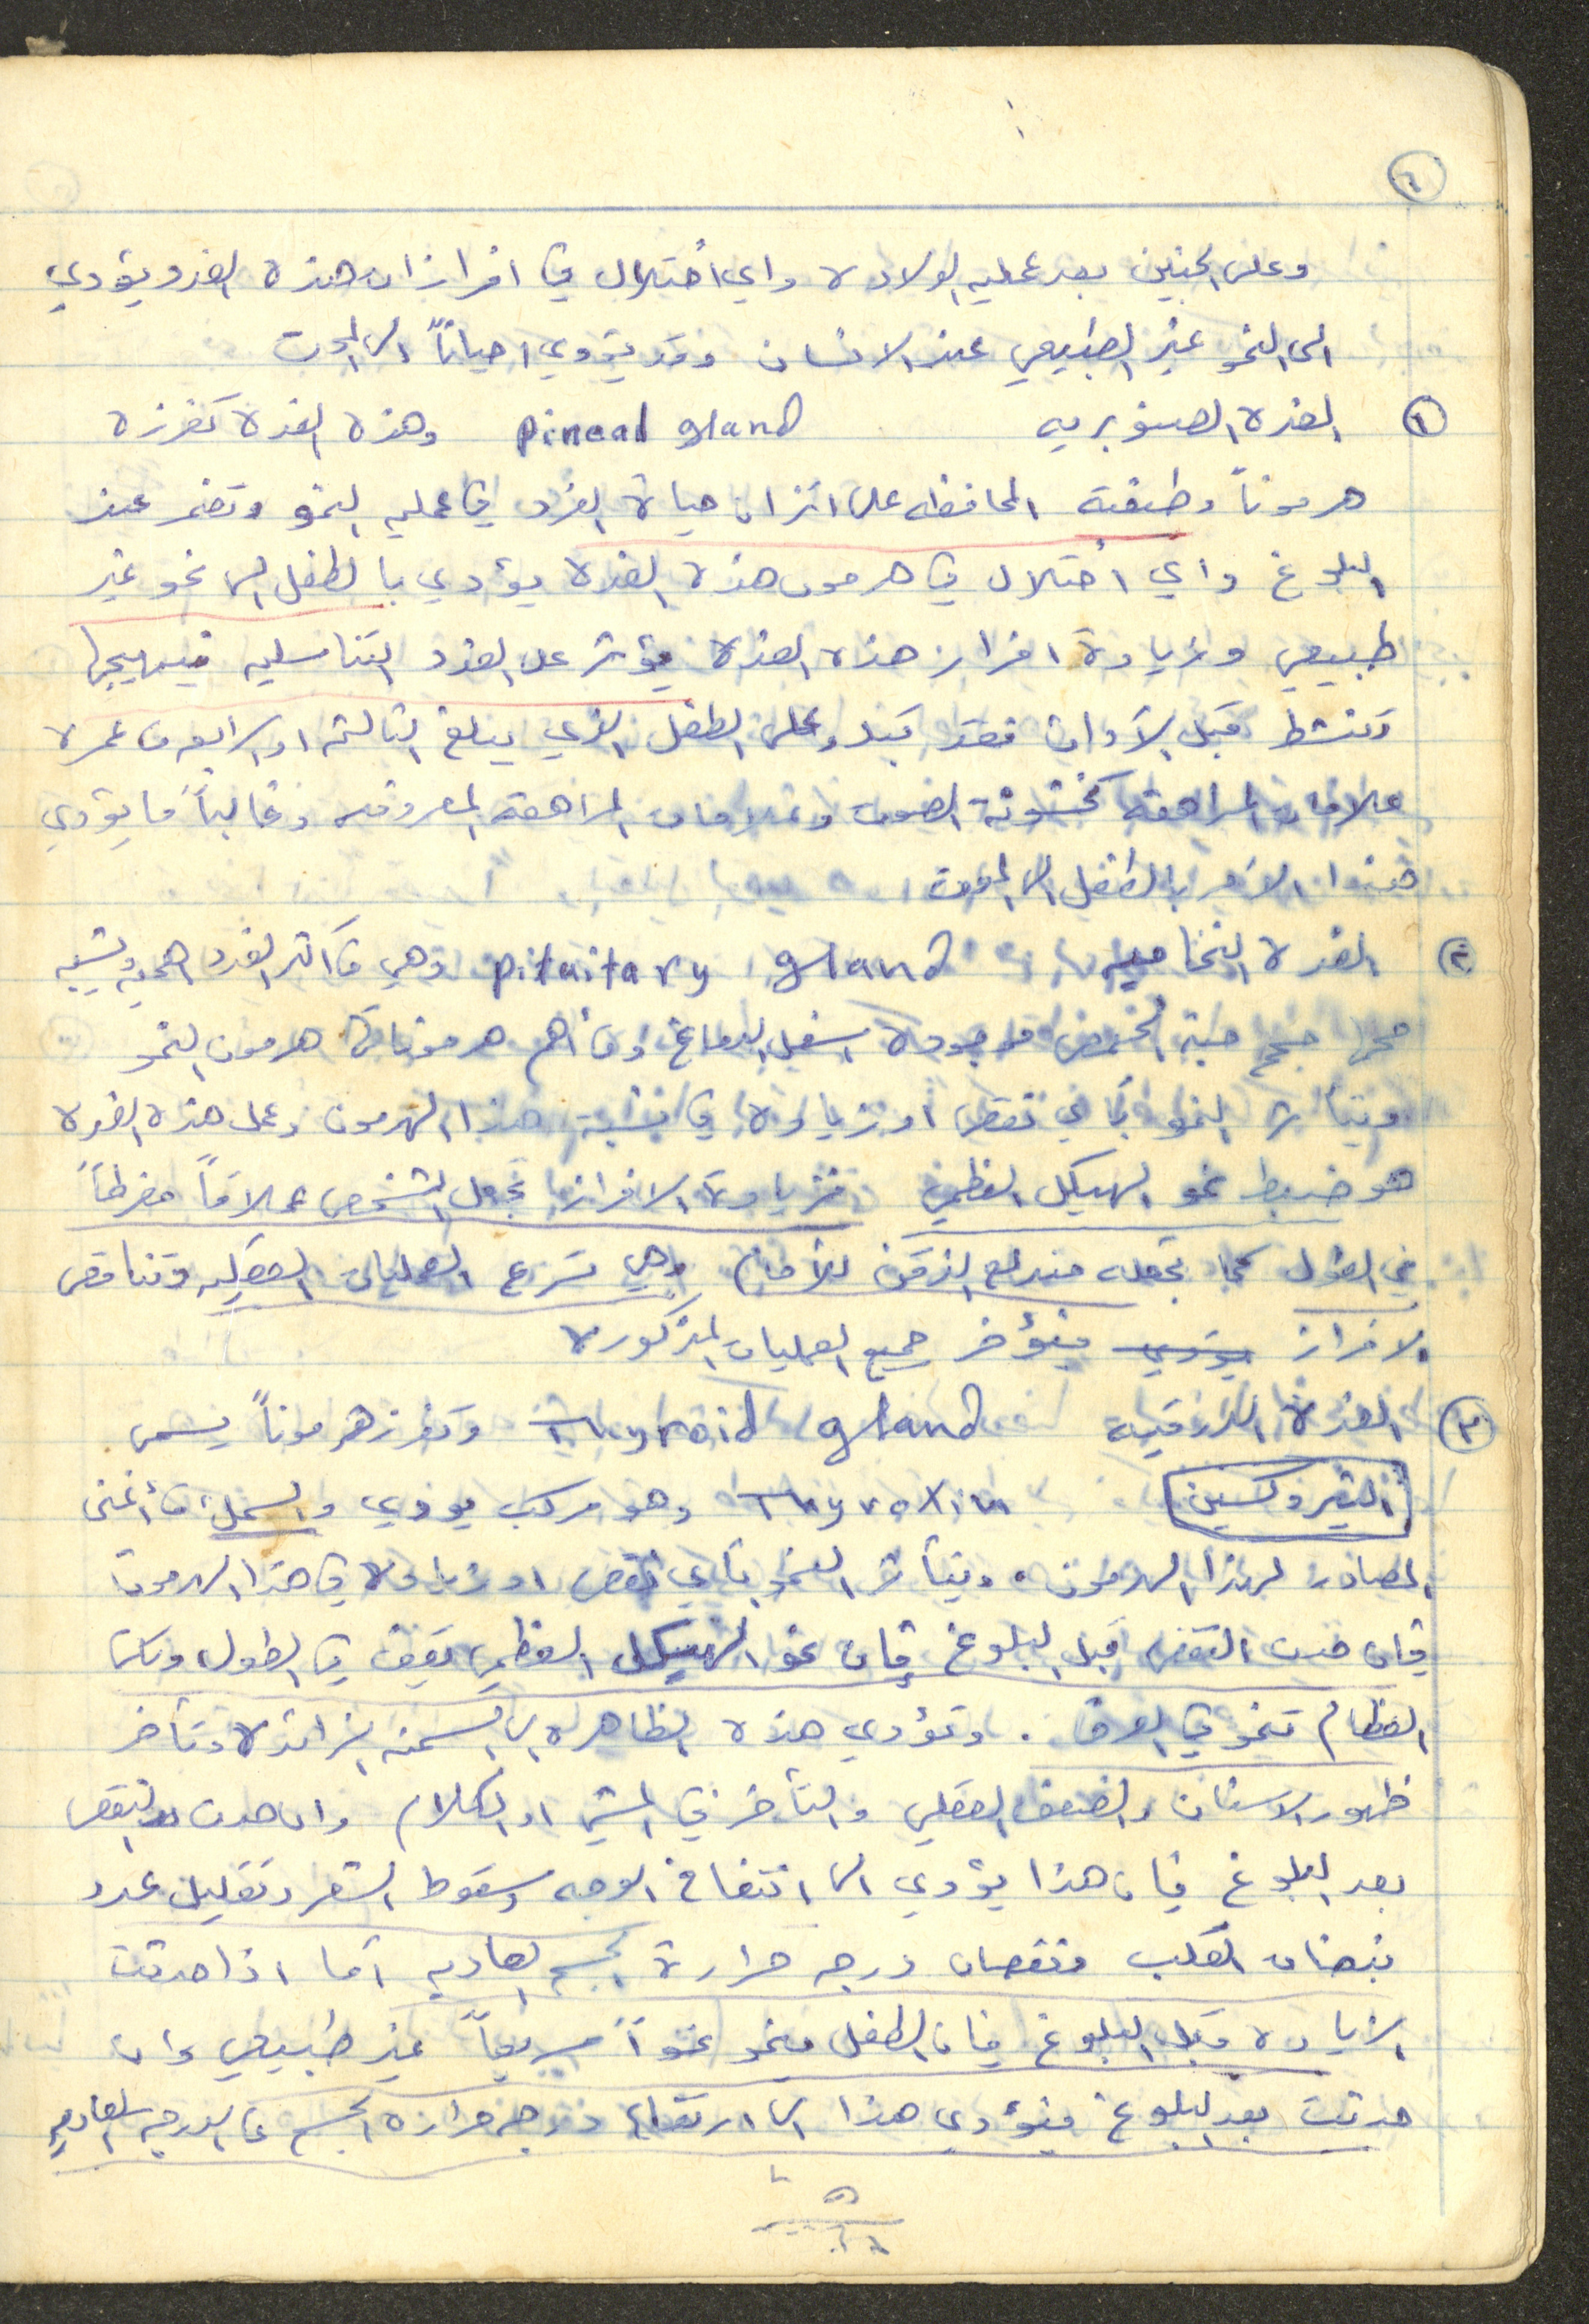 ٦
وعلى الجنين بعد عمليه الولادة واي اختلال في افرازات هذه الغدد يؤدي
الى النمو غير الطبيعي عند الانسان وقد يؤدي احياناً الى الموت
١ الغدة الصنوبريه pineal gland وهذه الغدة تفرزه
هرموناً وظيفته المحافظه على اتزان حياة الفرد في عمليه النمو وتضمر عند
البلوغ واي اختلال في هرمون هذه الغدة يؤدي بالطفل الى نمو غير
طبيعي وزيادة افراز هذه الغدة يؤثر على الغدد التناسليه فيهيجها
وتنشط قبل الآوان فقد تبدو على الطفل الذي يبلغ الثالثه او الرابعه من عمره
علامات المراهقه كخشونة الصوت وعلامات المراهقه المعروفه وغالباً ما يؤدي
هذا الامر بالطفل الى الموت
٢ الغدة النخاميه pituitary gland وهي من اكثر الغدد اهميه ويشبه
حجمها حجم حبة الحمص موجودة اسفل الدماغ ومن أهم هرموناتها هرمون النمو
ويتأثر النمو بأي نقص او زيادة في نسبة هذا الهرمون وعمل هذه الغدة
هو ضبط نمو الهيكل العظمي فزيادة الافراز تجعل الشخص عملاقاً مفرطاً
في الطول كما تجعله مندلع الذقن للأمام وهي تسرع العمليات العقليه وتناقص
الافراز يؤدي فيؤخر جميع العمليات المذكورة
٣ الغدة الدرقيه Thyroid gland وتفرز هرموناً يسمى
الثيروكسين Thyroxin وهو مركب يودي والسمك من أغنى
المصادر لهذا الهرمون. ويتأثر النمو بأي نقص او زيادة في هذا الهرمون
فإن حدث النقص قبل البلوغ فإن نمو الهيكل العظمي يقف في الطول ولكن
العظام تنمو في العرض. وتؤدي هذه الظاهرة الى السمنه الزائدة وتأخر
ظهور الاسنان والضعف العقلي والتأخر في المشي او الكلام وان حدث النقص
بعد البلوغ فإن هذا يؤدي الى انتفاخ الوجه وسقوط الشعر وتقليل عدد
نبضات القلب ونقصان درجه حرارة الجسم العاديه أما اذا حدثت
الزيادة قبل البلوغ فإن الطفل ينمو نمواً سريعاً غير طبيعي وان
حدثت بعد البلوغ فيؤدي هذا الى ارتفاع درجه حراره الجسم عن الدرجه العاديه